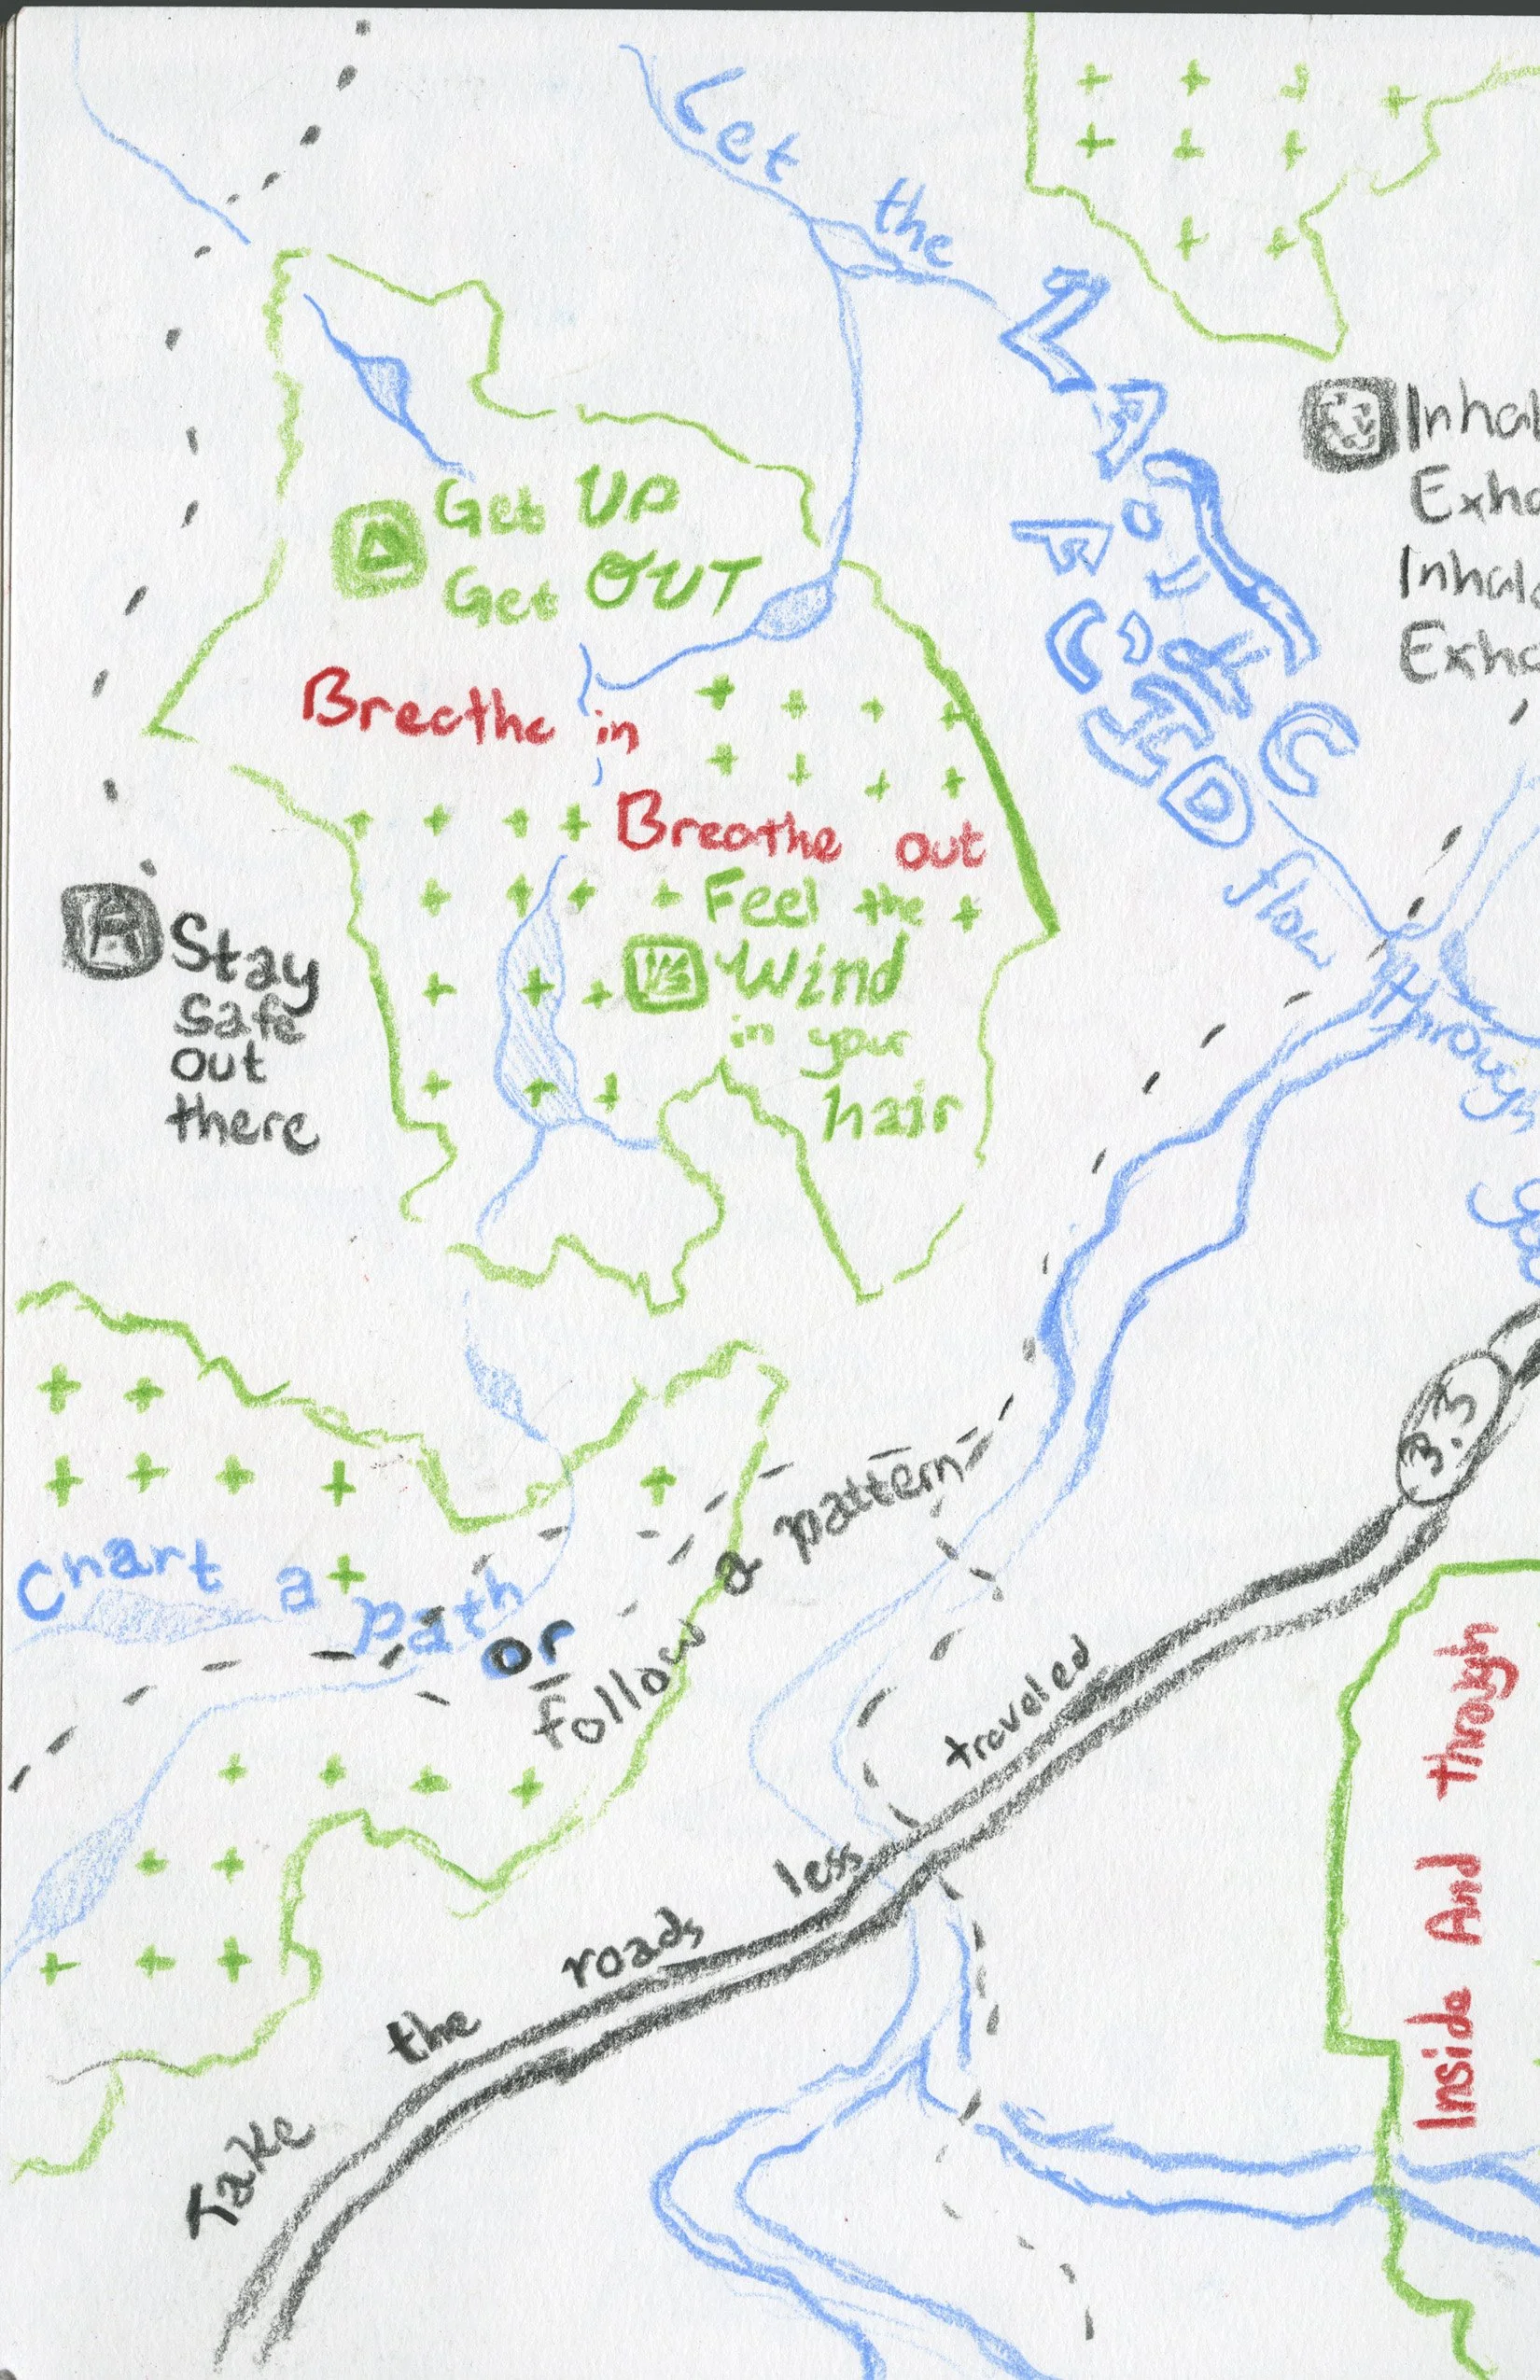 Let the
flow
through
Inhal
Exha
Inhala
Exha
Get UP
Get OUT
Breathe in
Breathe out
Feel the
Wind
in your
hair
Stay
safe
out
there
Chart a path
or
follow a pattern
3.3
Take the roads less traveled
Inside And through